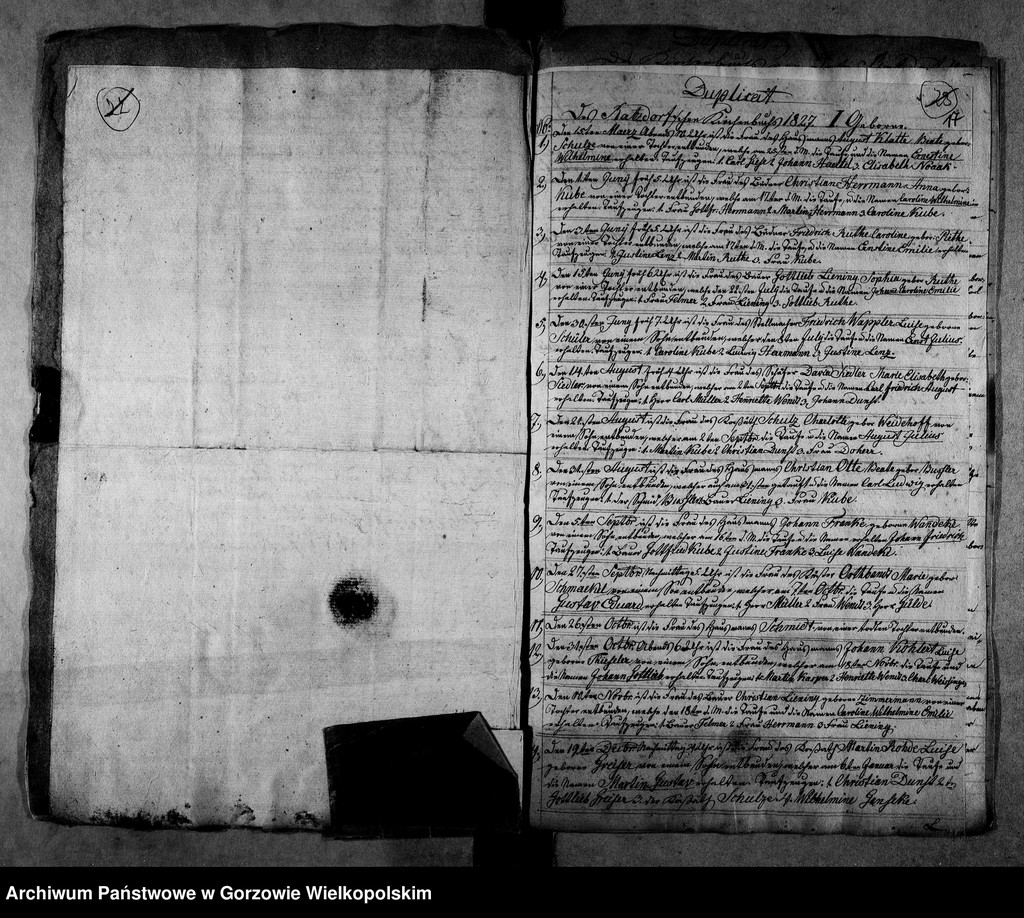 24
Duplicat
28
Des Katzdorfschen Kirchenbuchs 1827. I Geborne.
No
1, Den 15ten Maerz Abends 10 Uhr ist die Frau des Hausmanns August Klatte Beate gebor:
Schulze von einer Tochter entbunden, welche am 25sten d. M. die Taufe und die Namen Ernestine
Wilhelmine erhalten. Taufzeugen: 1. Carl 2 Johann 3. Elisabeth Noack.
2, Den 1ten Juny früh 5 Uhr ist die Frau des Büdner Christian Herrmann Anna gebor:
Kube von einer Tochter entbunden, welche am 17ten d. M. die Taufe u die Namen Caroline Wilhelmine
erhalten. Taufzeugen: 1. Frau Gottfr. Herrmann 2 Martin Herrmann 3 Caroline Kube.
3, Den 3ten Juny früh 5 Uhr ist die Frau des Büdner Friedrich Ruthe Caroline gebor: Rethe
von einer Tochter entbunden, welche am 17ten d. M. die Taufe u die Namen Caroline Emilie erhalten
Taufzeugen: 1. Justine Lenz 2 Martin Ruthe 3. Frau Kube.
4, Den 13ten Juny früh 6 Uhr ist die Frau des Bauer Gottlieb Liening Sophia gebor Ruthe
von einer Tochter entbunden, welche den 22sten July die Taufe u die Namen Johanne Caroline Emilie
erhalten. Taufzeugen: 1 Frau Felmer 2 Frau Liening 3. Gottlieb Ruthe.
5, Den 30sten Juny früh 7 Uhr ist die Frau des Stellmacher Friedrich Wappler Luise geborne
Schüler von einem Sohn entbunden, welcher den 8ten July die Taufe u die Namen Ernst Julius
erhalten. Taufzeugen: 1 Caroline Kube 2 Ludwig Harmann 3 Justine Lenz.
6, Den 14ten August früh 4 Uhr ist die Frau des Schäfer David Fiedler Marie Elisabeth gebor:
Fiedler, von einem Sohn entbunden, welcher am 2ten Septbr die Taufe u die Namen Carl Friedrich August
erhalten. Taufzeugen: 1 Herr Carl Müller 2 Henriette Wonis 3 Johann Dunst.
7, Den 21sten August ist die Frau des Koßäth Schulz Charlotte gebor Weidehoff von
einem Sohn entbunden, welcher am 2ten Septbr die Taufe u die Namen August Julius
erhalten. Taufzeugen: 1. Martin Kube 2 Christian Dunst 3. Frau Doherr.
8, Den 31sten August ist die Frau des Hausmanns Christian Otte Beate gebor: Bußler
von einem Sohn entbunden, welcher getauft u die Namen Carl Ludwig erhalten
Taufzeugen: 1. der Schmid Bußler 2 Bauer Liening 3. Frau Kube.
9, Den 5ten Septbr. ist die Frau des Hausmanns Johann Franke geborne Wandeke
von einem Sohn entbunden, welcher am 16ten d. M. die Taufe u die Namen erhalten Johann Friedrich
Taufzeugen: 1. Bauer Gottfried Kube 2 Justine Franke 3 Luise Wandeke.
10, Den 27sten Septbr. Nachmittag 5 Uhr ist die Frau des Küster Orthband Marie gebor:
von einem Sohn entbunden, welcher am 7ten Octbr. die Taufe u die Namen
Gustav Eduard erhalten. Taufzeugen: 1. Herr Müller 2 Frau Wonis 3. Herr Gülde.
11, Den 26sten Octbr. ist die Frau des Hausmanns Schmidt, von einer todten Tochter entbunden.
12, Den 31sten Octbr. Abends 6 Uhr ist die Frau des Hausmanns Johann Kohlert Luise
geborne Kießler von einem Sohn entbunden, welcher am 18ten Novbr. die Taufe und
die Namen Johann Gottlieb erhalten. Taufzeugen: 1. Martin Karge 2 Henriette Wonis 3
13, Den 10ten Novbr. ist die Frau des Bauer Christian Liening, geborne Zimmermann, von einer
Tochter entbunden, welche den 18ten d. M. die Taufe und die Namen Caroline Wilhelmine Emilie
erhalten. Taufzeugen: 1 Bauer Felmer 2 Frau Herrmann 3 Frau Liening.
14, Den 19ten Decbr. Nachmittag Uhr ist die Frau des Koßäth Martin Rohde Luise
geborne Greiser von einem Sohn entbunden, welcher am 6ten Januar die Taufe und
die Namen Martin Gustav erhalten. Taufzeugen: 1 Christian Dunst 2
Gottlieb Greiser 3. der Koßäth Schulze 4. Wilhelmine Genseke.
Archiwum Państwowe w Gorzowie Wielkopolskim